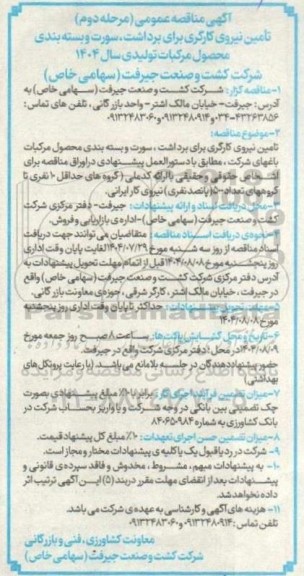 آگهی مناقصه عمومی (مرحله دوم)
تامین نیروی کارگری برای برداشت، سورت و بسته بندی
محصول مرکبات تولیدی سال ۱۴۰۴
شرکت کشت و صنعت جیرفت (سهامی خاص)
۱-مناقصه گزار: شرکت کشت و صنعت جیرفت (سهامی خاص) به
آدرس: جیرفت- خیابان مالک اشتر- واحد بازرگانی، تلفن های تماس:
۰۳۴-۴۳۲۶۳۸۵۶ و ۰۹۱۳۲۴۸۰۹۱۴ و ۰۹۱۳۲۴۸۳۰۶۰
۲-موضوع مناقصه:
تامین نیروی کارگری برای برداشت، سورت و بسته بندی محصول مرکبات
باغهای شرکت، مطابق با دستورالعمل پیشنهادی در اوراق مناقصه برای
اشخاص حقوقی و حقیقی با ارائه کد ملی (گروه های حداقل ۱۰ نفری تا
گروههای تعداد ۵۰۰ پانصد نفری) نیروی کار ایرانی.
۳-محل دریافت اسناد و ارائه پیشنهادات: جیرفت- دفتر مرکزی شرکت
کشت و صنعت جیرفت (سهامی خاص)-اداره ی بازاریابی و فروش.
۴-نحوه ی دریافت اسناد مناقصه: متقاضیان می توانند جهت دریافت
اسناد مناقصه از روز سه شنبه مورخ ۱۴۰۴/۰۷/۲۹ لغایت پایان وقت اداری
روز پنجشنبه مورخ ۱۴۰۴/۰۸/۰۸ قبل از اتمام مهلت تحویل پیشنهادات به
آدرس دفتر مرکزی شرکت کشت و صنعت جیرفت (سهامی خاص) واقع
در جیرفت، خیابان مالک اشتر، کارگر شرقی، حوزه ی معاونت بازرگانی.
۵-مهلت تحویل پیشنهادات: حداکثر تا پایان وقت اداری روز پنجشنبه
مورخ ۱۴۰۴/۰۸/۰۸
۶-تاریخ و محل گشایش پاکت ها: ساعت ۸ صبح روز جمعه مورخ
۱۴۰۴/۰۸/۰۹ در محل: دفتر مرکزی شرکت واقع در جیرفت.
حضور پیشنهاددهندگان در جلسه بلامانع می باشد. (با رعایت پروتکل های
بهداشتی)
۷-میزان تضمین فرآیند اجرای کار: برابر با ۱۰٪ مبلغ پیشنهادی بصورت
چک تضمینی بین بانکی در وجه شرکت و یا واریز بحساب شرکت در
بانک کشاورزی به شماره ۸۴۰۶۵۰۹۸۴
۸-میزان تضمین حسن اجرای تعهدات: ۱۰٪ مبلغ کل پیشنهاد قیمت.
۹- شرکت در رد یا قبول یک یا کلیه ی پیشنهادات مختار و مجاز است.
۱۰- به پیشنهادات مبهم، مشروط، مخدوش و فاقد سپرده ی قانونی و
پیشنهادات بعد از انقضای مهلت مقرر در بند (۵) این آگهی ترتیب اثر
داده نخواهد شد.
۱۱- هزینه های آگهی و کارشناسی به عهده ی شرکت می باشد.
تلفن تماس: ۰۹۱۳۲۴۸۰۹۱۴ و ۰۹۱۳۲۴۸۳۰۶۰
معاونت کشاورزی، فنی و بازرگانی
شرکت کشت و صنعت جیرفت (سهامی خاص)